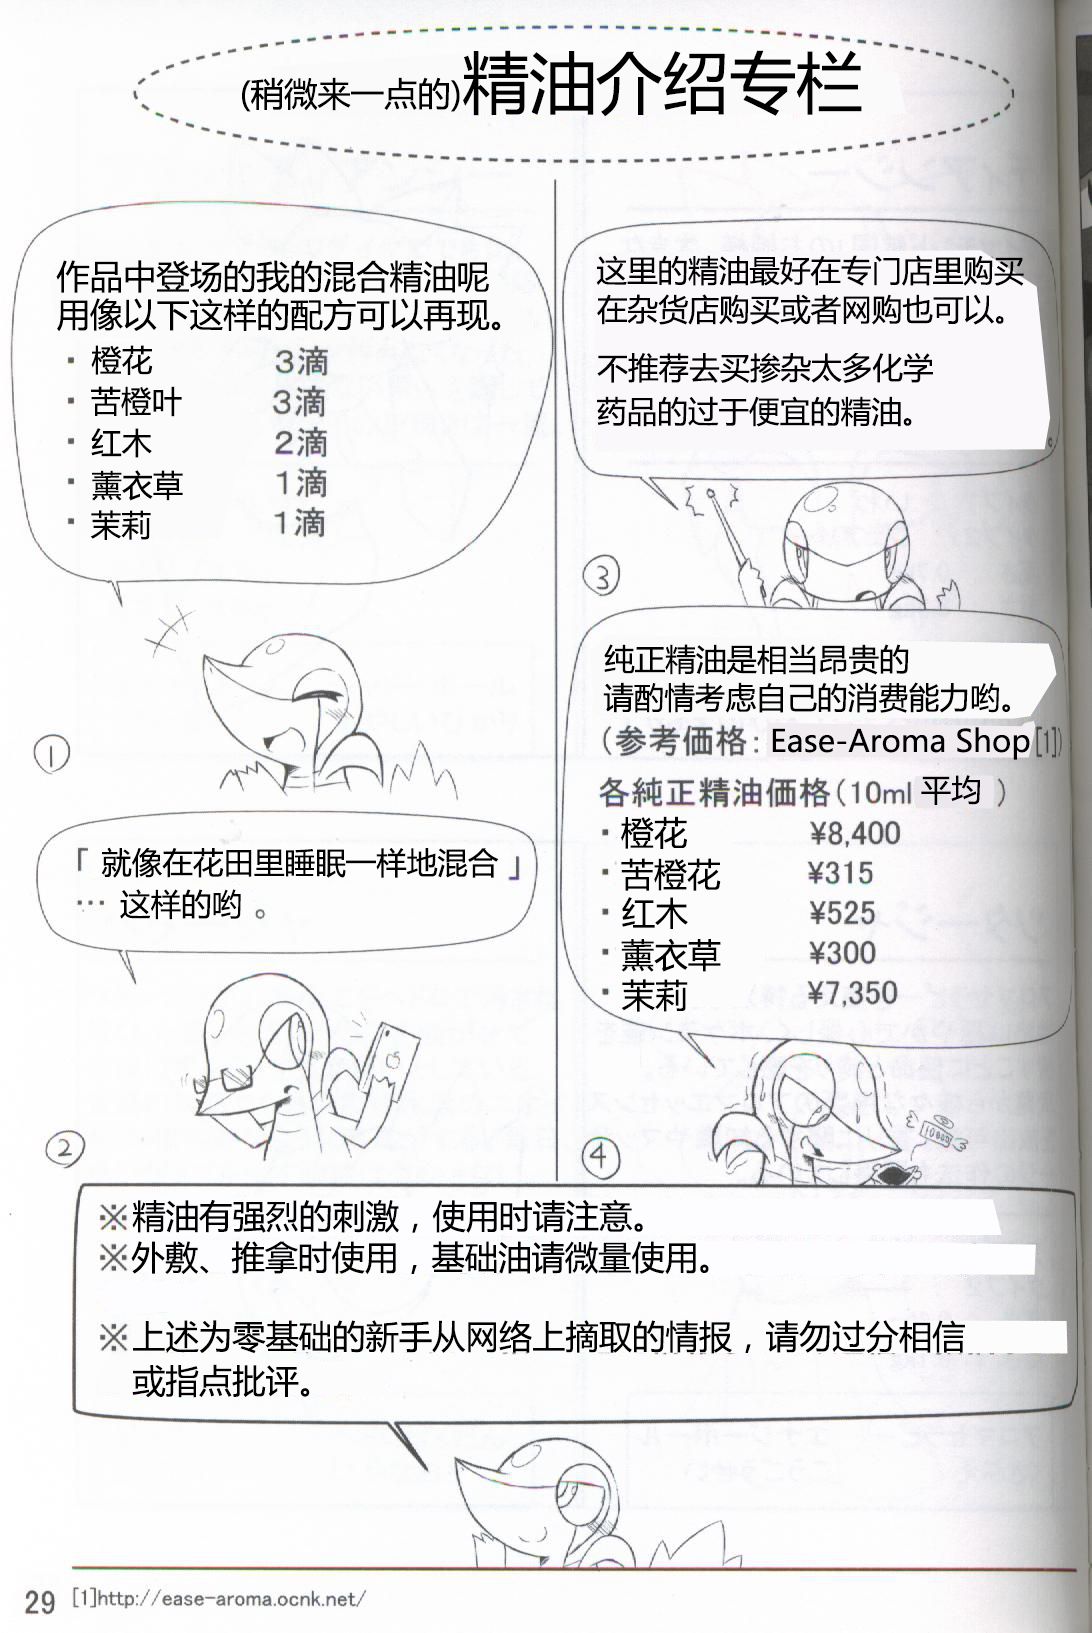 (稍微来一点的)精油介绍专栏
作品中登场的我的混合精油呢
用像以下这样的配方可以再现。
・橙花 3滴
・苦橙叶 3滴
・红木 2滴
・薰衣草 1滴
・茉莉 1滴
①
「就像在花田里睡眠一样地混合」
… 这样的哟 。
②
这里的精油最好在专门店里购买
在杂货店购买或者网购也可以。
不推荐去买掺杂太多化学
药品的过于便宜的精油。
③
纯正精油是相当昂贵的
请酌情考虑自己的消费能力哟。
(参考価格: Ease-Aroma Shop[1])
各純正精油価格(10ml 平均 )
・橙花 ¥8,400
・苦橙花 ¥315
・红木 ¥525
・薰衣草 ¥300
・茉莉 ¥7,350
④
※精油有强烈的刺激，使用时请注意。
※外敷、推拿时使用，基础油请微量使用。
※上述为零基础的新手从网络上摘取的情报，请勿过分相信
或指点批评。
29 [1]http://ease-aroma.ocnk.net/